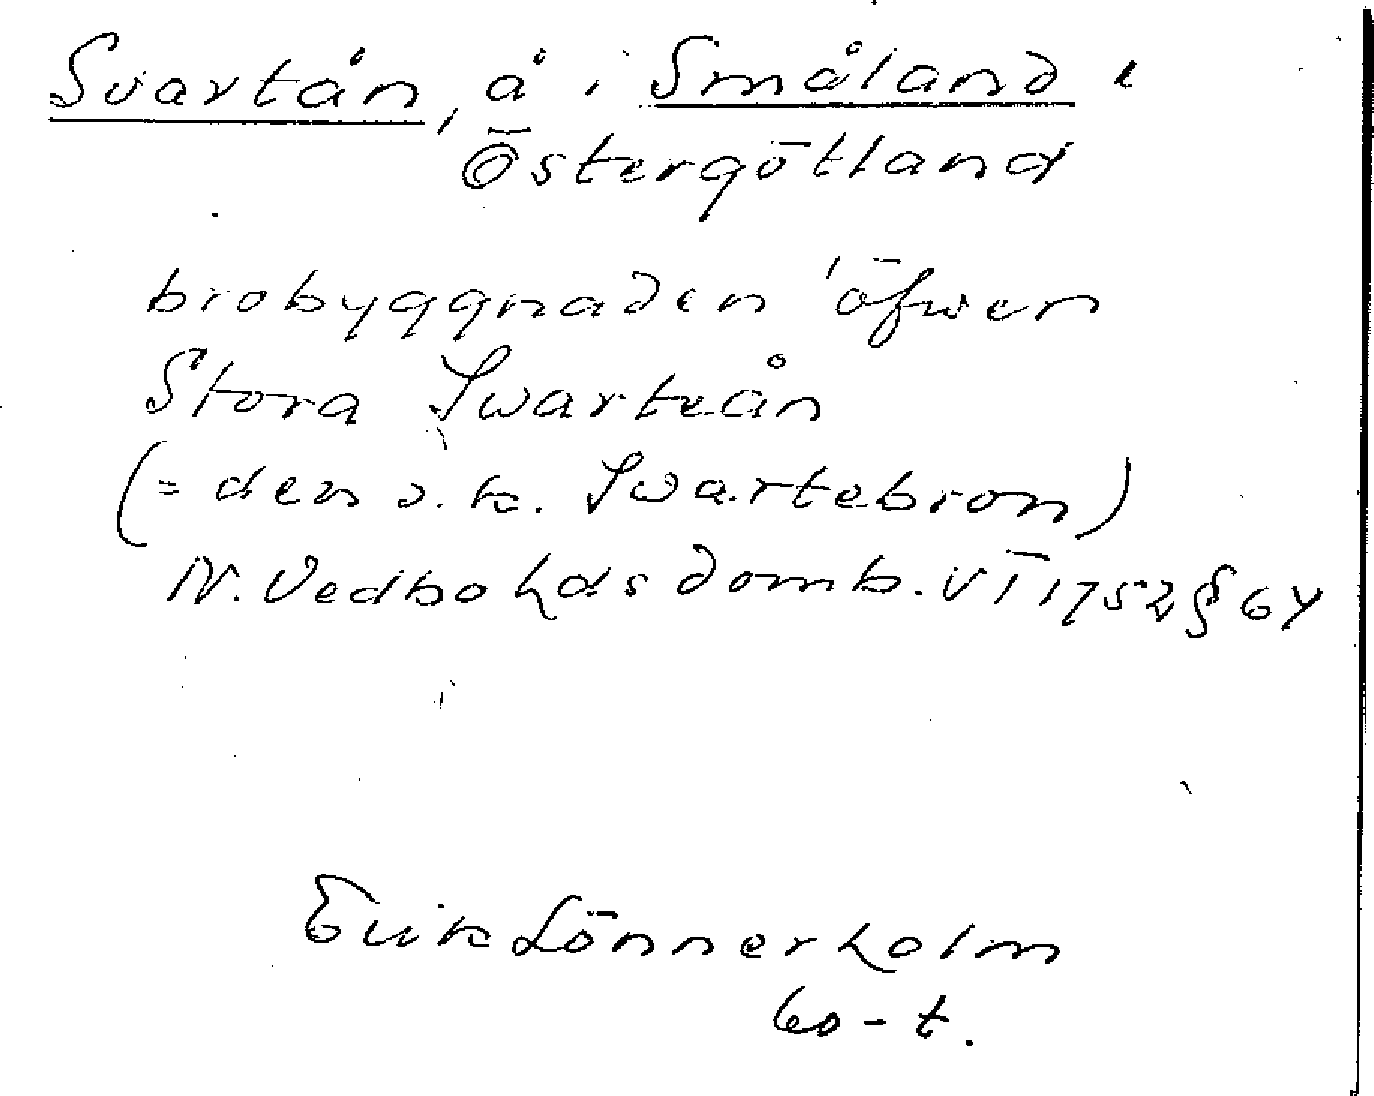 Svartån, å i Småland i
Östergötland
brobyggnaden öfwer
Stora Swarteån
(= den s.k. Swartebron)
N. Vedbo hds domb. VT 1752 § 64
Erik Lönnerholm
60-t.